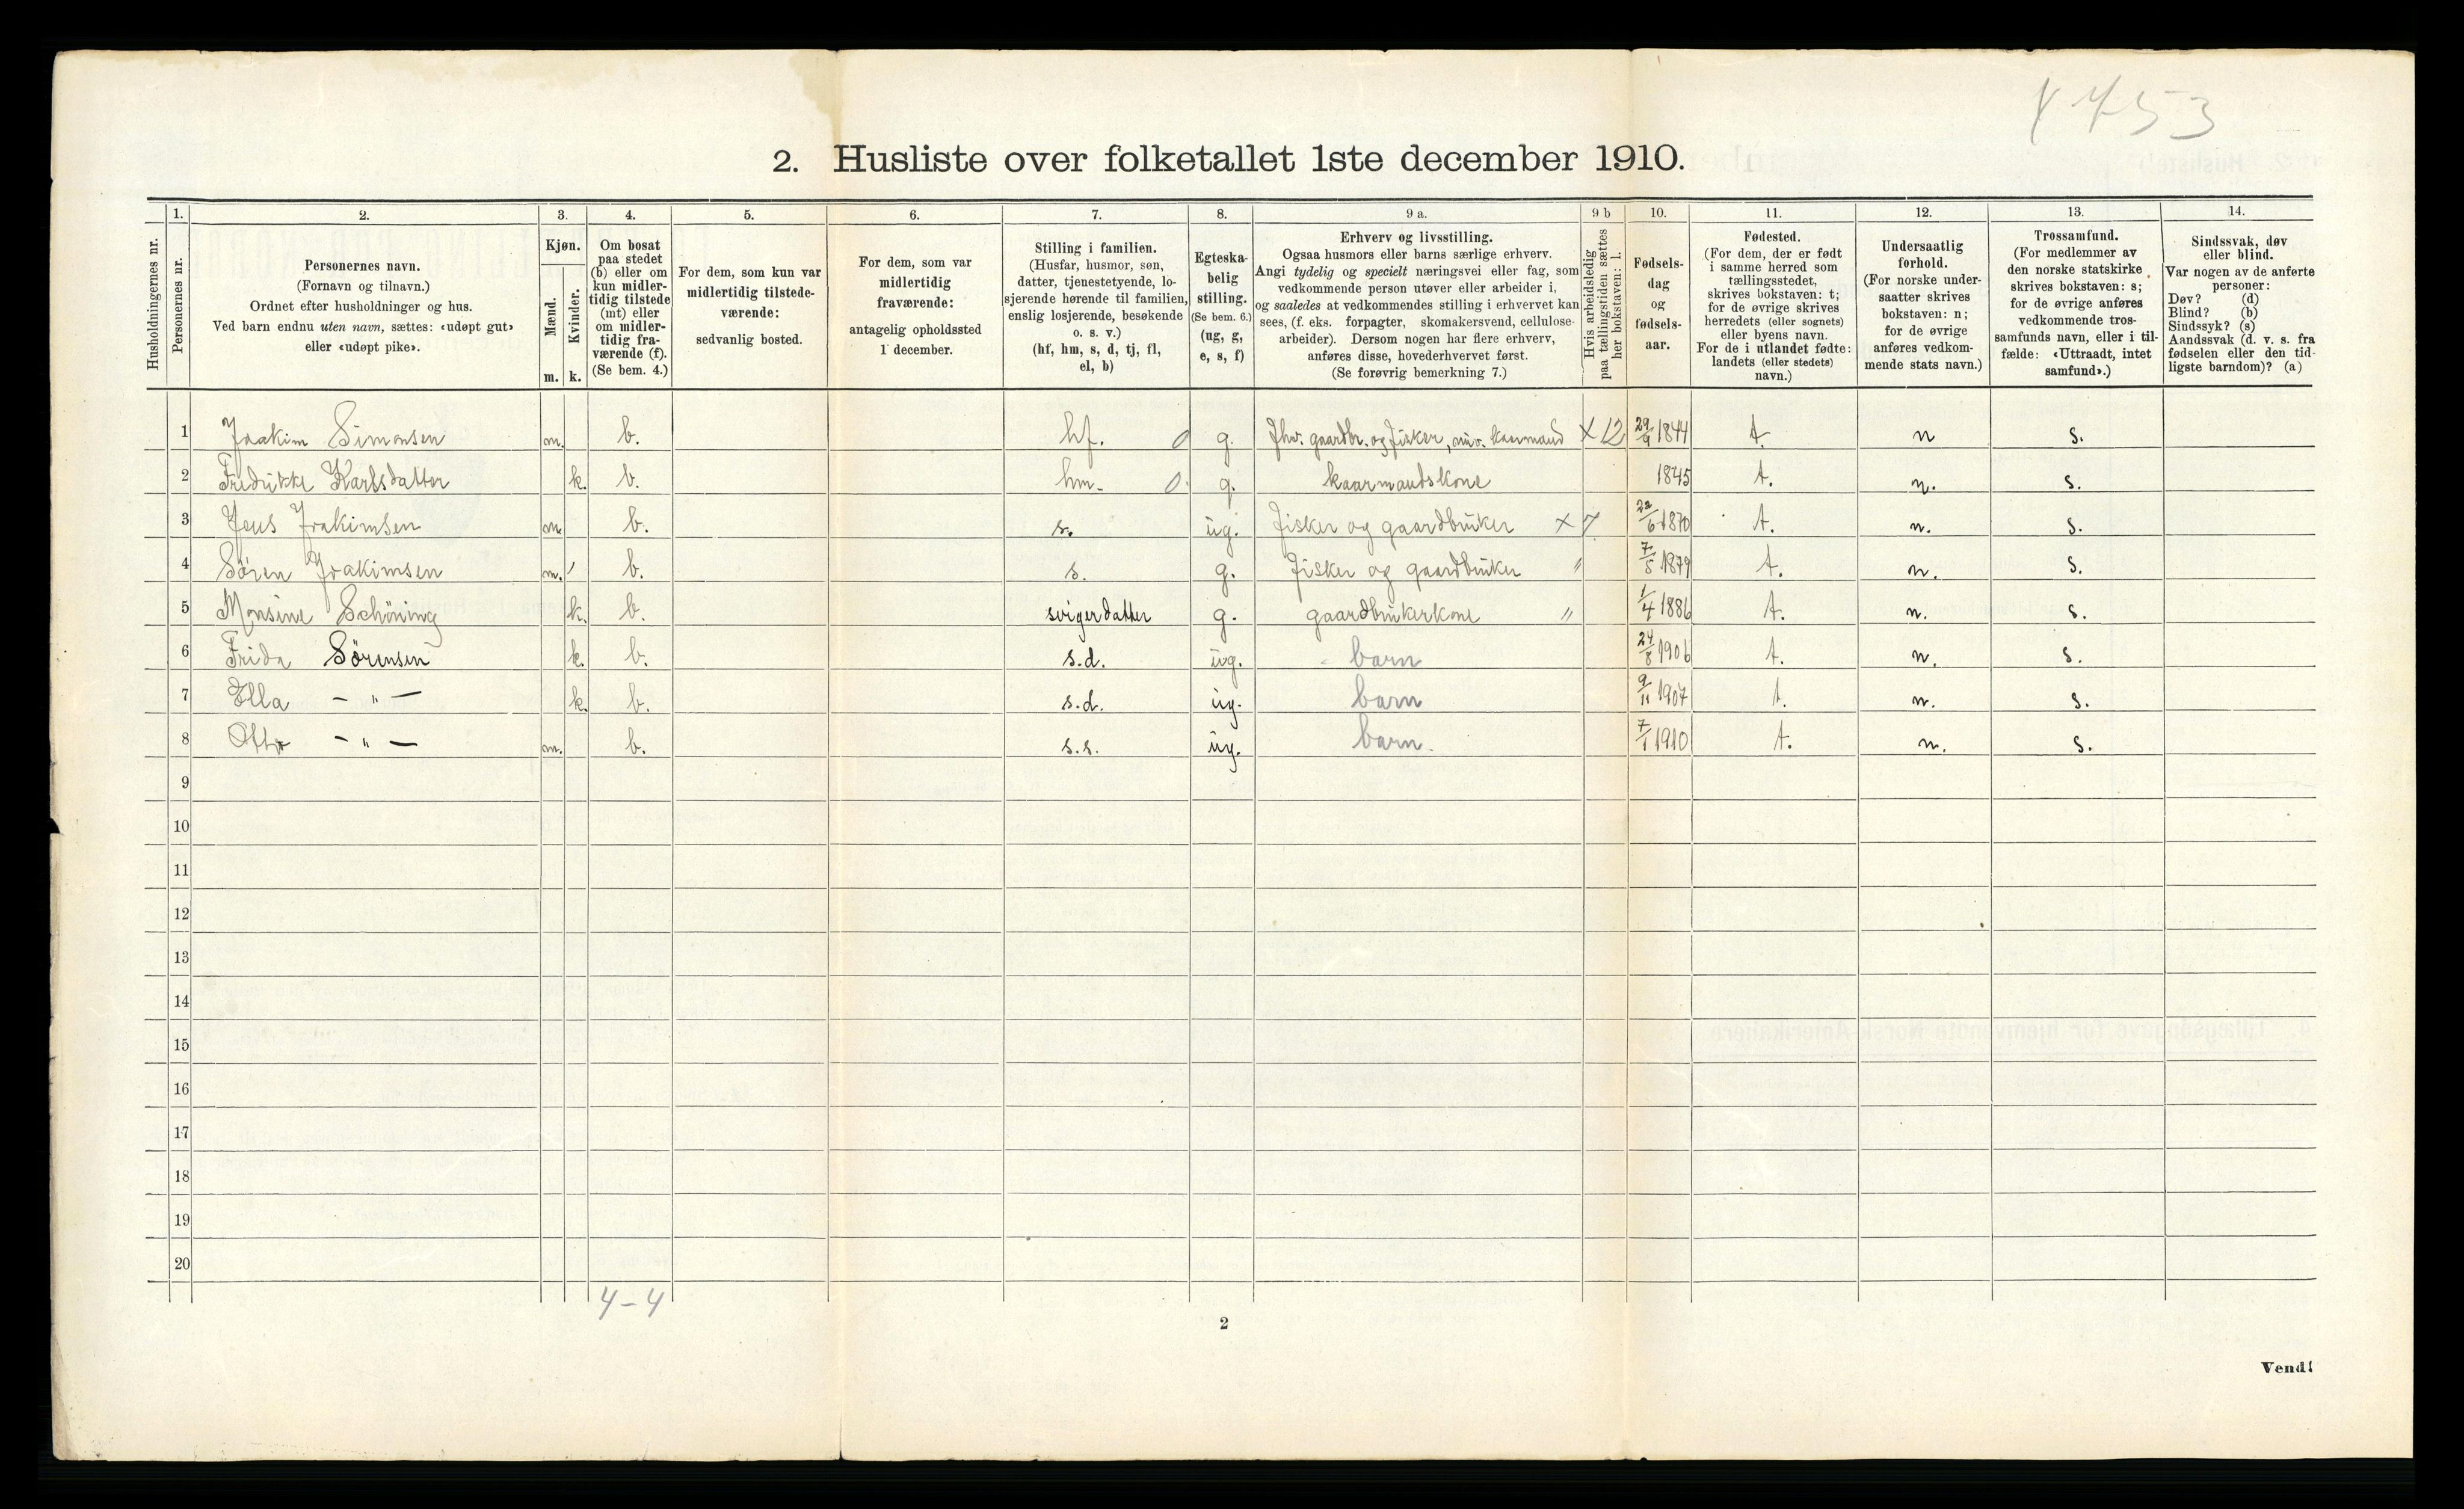 1753
2. Husliste over folketallet 1ste december 1910.
Husholdningernes nr.
1.
Personernes nr.
2.
Personernes navn.
(Fornavn og tilnavn.)
Ordnet efter husholdninger og hus.
Ved barn endnu uten navn, sættes: «udøpt gut»
eller «udøpt pike».
3.
Kjøn.
Mænd.
Kvinder.
m. k.
4.
Om bosat
paa stedet
(b) eller om
kun midler-
tidig tilstede
(mt) eller
om midler-
tidig fra-
værende (f).
(Se bem. 4.)
5.
For dem, som kun var
midlertidig tilstede-
værende:
sedvanlig bosted.
6.
For dem, som var
midlertidig
fraværende:
antagelig opholdssted
1 december.
7.
Stilling i familien.
(Husfar, husmor, søn,
datter, tjenestetyende, lo-
sjerende hørende til familien,
enslig losjerende, besøkende
o. s. v.)
(hf, hm, s, d, tj, fl,
el, b)
8.
Egteska-
belig
stilling.
(Se bem. 6.)
(ug, g,
e, s, f)
9 a.
Erhverv og livsstilling.
Ogsaa husmors eller barns særlige erhverv.
Angi tydelig og specielt næringsvei eller fag, som
vedkommende person utøver eller arbeider i,
og saaledes at vedkommendes stilling i erhvervet kan
sees, (f. eks. forpagter, skomakersvend, cellulose-
arbeider). Dersom nogen har flere erhverv,
anføres disse, hovederhvervet først.
(Se forøvrig bemerkning 7.)
9 b
Hvis arbeidsledig
paa tællingstiden sættes
her bokstaven: l.
10.
Fødsels-
dag
og
fødsels-
aar.
11.
Fødested.
(For dem, der er født
i samme herred som
tællingsstedet,
skrives bokstaven: t;
for de øvrige skrives
herredets (eller sognets)
eller byens navn.
For de i utlandet fødte:
landets (eller stedets)
navn.)
12.
Undersaatlig
forhold.
(For norske under-
saatter skrives
bokstaven: n;
for de øvrige
anføres vedkom-
mende stats navn.)
13.
Trossamfund.
(For medlemmer av
den norske statskirke
skrives bokstaven: s;
for de øvrige anføres
vedkommende tros-
samfunds navn, eller i til-
fælde: «Uttraadt, intet
samfund».)
14.
Sindssvak, døv
eller blind.
Var nogen av de anførte
personer:
Døv? (d)
Blind? (b)
Sindssyk? (s)
Aandssvak (d. v. s. fra
fødselen eller den tid-
ligste barndom)? (a)
1 Joakim Simonsen m. b. hf. 0 g. Fhv. gaardbr. og fisker, nuv. kaarmand X 12 29/9 1844 t. n s.
2 Fredrikke Karlsdatter k. b. hm. 0 g. kaarmandskone 1845 t. n. s.
3 Jens Joakimsen m b. s. ug. Fisker og gaardbruker X 7 22/6 1870 t. n. s.
4 Sören Joakimsen m. b. s. g. Fisker og gaardbruker " 7/5 1879 t. n. s.
5 Monsine Schöning k. b. svigerdatter g. gaardbrukerkone " 1/4 1886 t. n. s.
6 Frida Sörensen k. b. s.d. ug. barn 24/8 1906 t. n. s.
7 Ella - " - k. b. s.d. ug. barn 9/11 1907 t. n. s.
8 Otto - " - m. b. s.s. ug. barn. 7/1 1910 t. n. s.
9
10
11
12
13
14
15
16
17
18
19
20
4-4
2
Vend!